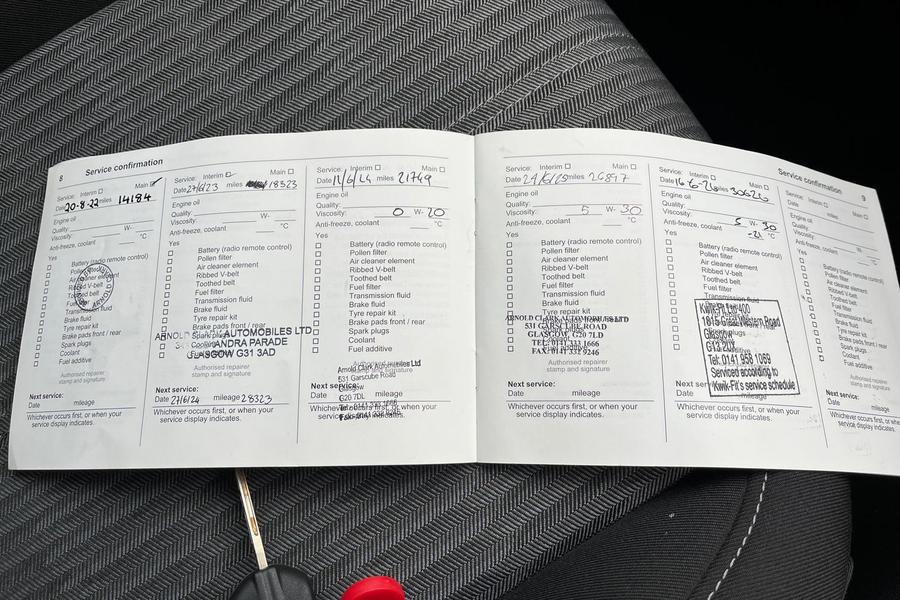 8 Service confirmation
Service: Interim ☐ Main ☑
Date 20-8-22 miles 14184
Engine oil
Quality:
Viscosity: W-
Anti-freeze, coolant °C
Yes
Battery (radio remote control)
Pollen filter
Air cleaner element
Ribbed V-belt
Toothed belt
Fuel filter
Transmission fluid
Brake fluid
Tyre repair kit
Brake pads front / rear
Spark plugs
Coolant
Fuel additive
Authorised repairer
stamp and signature
Next service:
Date mileage
Whichever occurs first, or when your
service display indicates.
Service: Interim ☐ Main ☐
Date 27/6/23 miles 18323
Engine oil
Quality:
Viscosity: W-
Anti-freeze, coolant °C
Yes
Battery (radio remote control)
Pollen filter
Air cleaner element
Ribbed V-belt
Toothed belt
Fuel filter
Transmission fluid
Brake fluid
Tyre repair kit
Brake pads front / rear
ARNOLD CLARK AUTOMOBILES LTD
ANDRA PARADE
GLASGOW G31 3AD
Authorised repairer
stamp and signature
Next service:
Date 27/6/24 mileage 28323
Whichever occurs first, or when your
service display indicates.
Service: Interim ☐ Main ☐
Date miles 21749
Engine oil
Quality:
Viscosity: 0 W- 20
Anti-freeze, coolant °C
Yes
Battery (radio remote control)
Pollen filter
Air cleaner element
Ribbed V-belt
Toothed belt
Fuel filter
Transmission fluid
Brake fluid
Tyre repair kit
Brake pads front / rear
Spark plugs
Coolant
Fuel additive
Arnold Clark Automobiles Ltd
531 Garscube Road
Glasgow
G20 7DL
Next service:
mileage
Whichever occurs first, or when your
service display indicates.
Service confirmation 9
Service: Interim ☐ Main ☐
Date miles 26897
Engine oil
Quality:
Viscosity: 5 W- 30
Anti-freeze, coolant °C
Yes
Battery (radio remote control)
Pollen filter
Air cleaner element
Ribbed V-belt
Toothed belt
Fuel filter
Transmission fluid
Brake fluid
Tyre repair kit
ARNOLD CLARK AUTOMOBILES LTD
531 GARSCUBE ROAD
GLASGOW, G20 7LD
TEL: 0141 332 1666
FAX: 0141 332 9246
Authorised repairer
stamp and signature
Next service:
Date mileage
Whichever occurs first, or when your
service display indicates.
Service: Interim ☐ Main ☐
Date 16-6-26 miles 30626
Engine oil
Quality:
Viscosity: 5 W- 30
Anti-freeze, coolant °C
Yes
Battery (radio remote control)
Pollen filter
Air cleaner element
Ribbed V-belt
Toothed belt
Fuel filter
Transmission fluid
Kwik-Fit Ltd 400
1815 Great Western Road
Glasgow
Tel: 0141 958 1069
Serviced according to
Kwik-Fit's service schedule
Next service:
Date mileage
Whichever occurs first, or when your
service display indicates.
Service: Interim ☐
Date miles
Engine oil
Quality:
Viscosity: W-
Anti-freeze, coolant
Yes
Battery (radio remote control)
Pollen filter
Air cleaner element
Ribbed V-belt
Toothed belt
Fuel filter
Transmission fluid
Brake fluid
Tyre repair kit
Brake pads front / rear
Spark plugs
Coolant
Fuel additive
Authorised repairer
stamp and signature
Next service:
Date mileage
Whichever occurs first, or when
service display indicates.